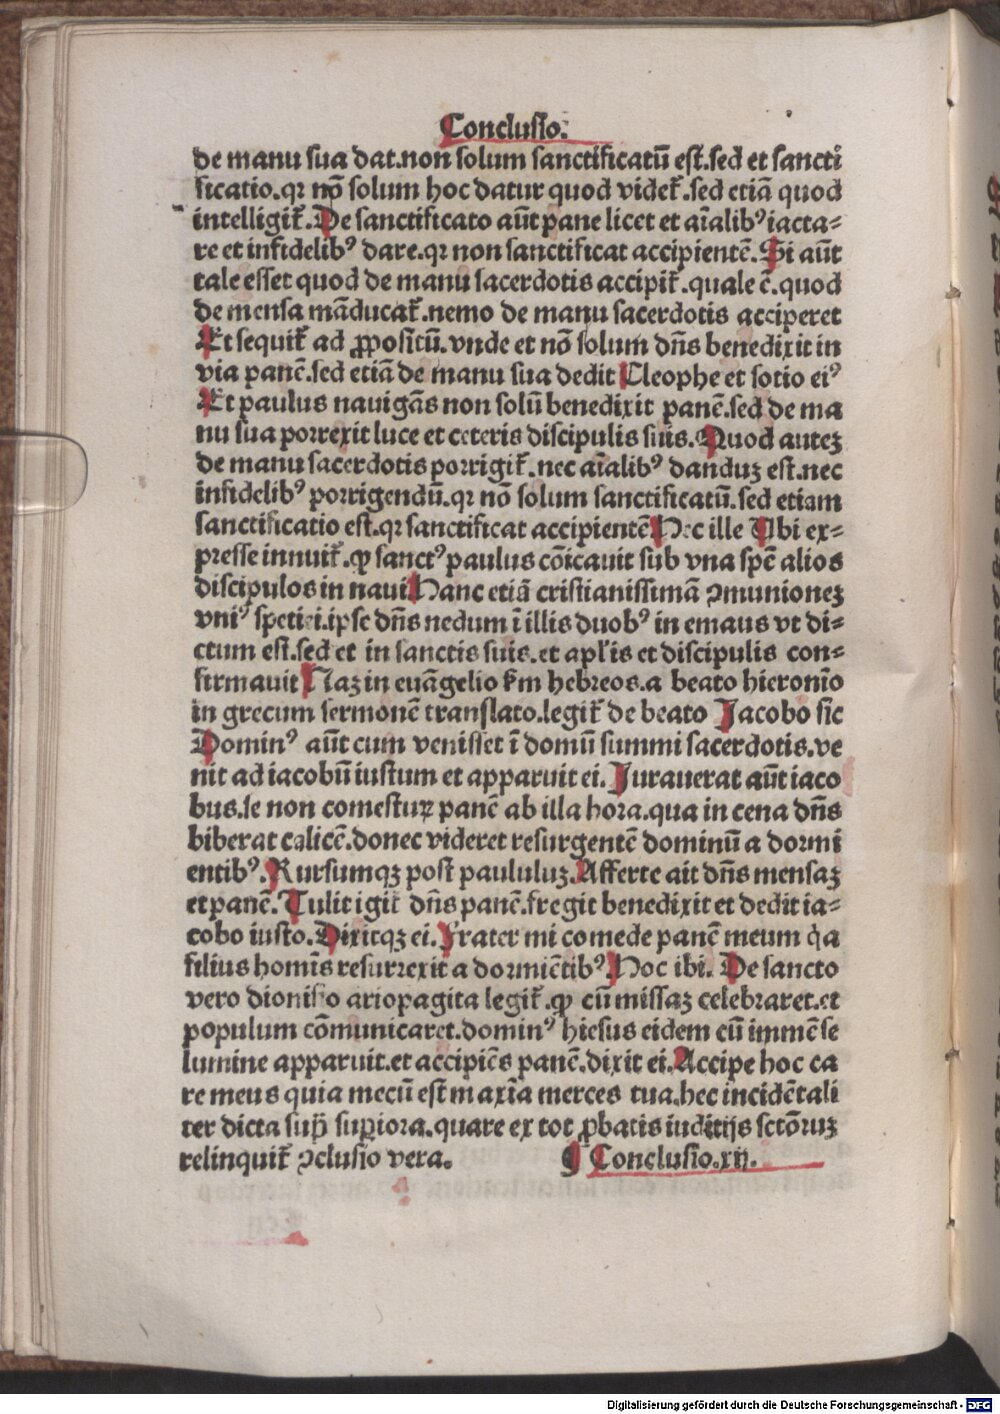 Conclusio.
de manu sua dat.non solum sanctificatū est.sed et sancti
ficatio.qꝛ nō solum hoc datur quod videt᷑.sed etiā quod
intelligit᷑.De sanctificato aūt pane licet et aīalibꝰ iacta⸗
re et infidelibꝰ dare.qꝛ non sanctificat accipientē.Si aūt
tale esset quod de manu sacerdotis accipit᷑.quale ē.quod
de mensa māducat᷑.nemo de manu sacerdotis acciperet
Et sequit᷑ ad ꝓpositū.vnde et nō solum dn̄s benedixit in
via panē.sed etiā de manu sua dedit Cleophe et sotio eiꝰ
Et paulus nauigās non solū benedixit panē.sed de ma
nu sua porrexit luce et ceteris discipulis suis.Quod auteꝫ
de manu sacerdotis porrigit᷑.nec aīalibꝰ danduꝫ est.nec
infidelibꝰ porrigendū.qꝛ nō solum sanctificatū.sed etiam
sanctificatio est.qꝛ sanctificat accipientē Hec ille Vbi ex⸗
presse innuit᷑.ꝙ sanctꝰ paulus cōicauit sub vna spē alios
discipulos in naui Hanc etiā cristianissimā ꝯmunioneꝫ
vniꝰ spetiei.ipse dn̄s nedum ī illis duobꝰ in emaus vt di⸗
ctum est.sed et in sanctis suis.et apl'is et discipulis con⸗
firmauit Naꝫ in euāgelio ẜm hebreos.a beato hieronīo
in grecum sermonē translato.legit᷑ de beato Jacobo sic
Dominꝰ aūt cum venisset ī domū summi sacerdotis.ve
nit ad iacobū iustum et apparuit ei. Jurauerat aūt iaco
bus.se non comesturꝫ panē ab illa hora.qua in cena dn̄s
biberat calicē.donec videret resurgentē dominū a dormi
entibꝰ.Rursumqꝫ post paululuꝫ.Afferte ait dn̄s mensaꝫ
et panē.Tulit igit᷑ dn̄s panē.fregit benedixit et dedit ia⸗
cobo iusto.Dixitqꝫ ei.Frater mi comede panē meum qͥa
filius homīs resurrexit a dormiētibꝰ.Hoc ibi. De sancto
vero dionisio ariopagita legit᷑.ꝙ cū missaꝫ celebraret.et
populum cōmunicaret.dominꝰ hiesus eidem cū immēse
lumine apparuit.et accipiēs panē.dixit ei.Accipe hoc ca
re meus quia mecū est maxīa merces tua.hec incidētali
ter dicta sup̄ suꝑiora.quare ex tot ꝓbatis iuditijs sctōruꝫ
relinquit᷑ ꝯclusio vera. ¶ Conclusio.xij.
Digitalisierung gefördert durch die Deutsche Forschungsgemeinschaft - DFG